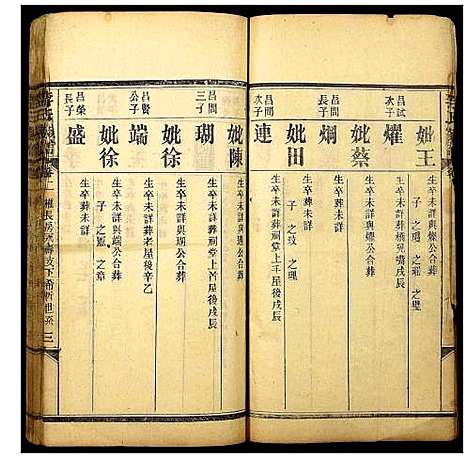 妣王
生卒未詳與燦公合葬
子 之 之 之璧
昌試
次子
燿
生卒未詳葬
妣蔡
生卒未詳與燿公合葬
昌問
長子
炯
生卒未詳葬祠堂上手屋後戌辰
妣田
生卒未詳與炯公合葬
子 之玟 之理
昌問
次子
連
生卒葬未詳
妣陳
生卒葬未詳
昌問
三子
瑚
生卒未詳葬祠堂上首屋後戌辰
妣徐
生卒未詳與瑚公合葬
昌賢
公子
端
生卒未詳葬老屋後辛乙
妣徐
生卒未詳與端公合葬
子 之 之章
昌榮
長子
盛
生卒葬未詳
三